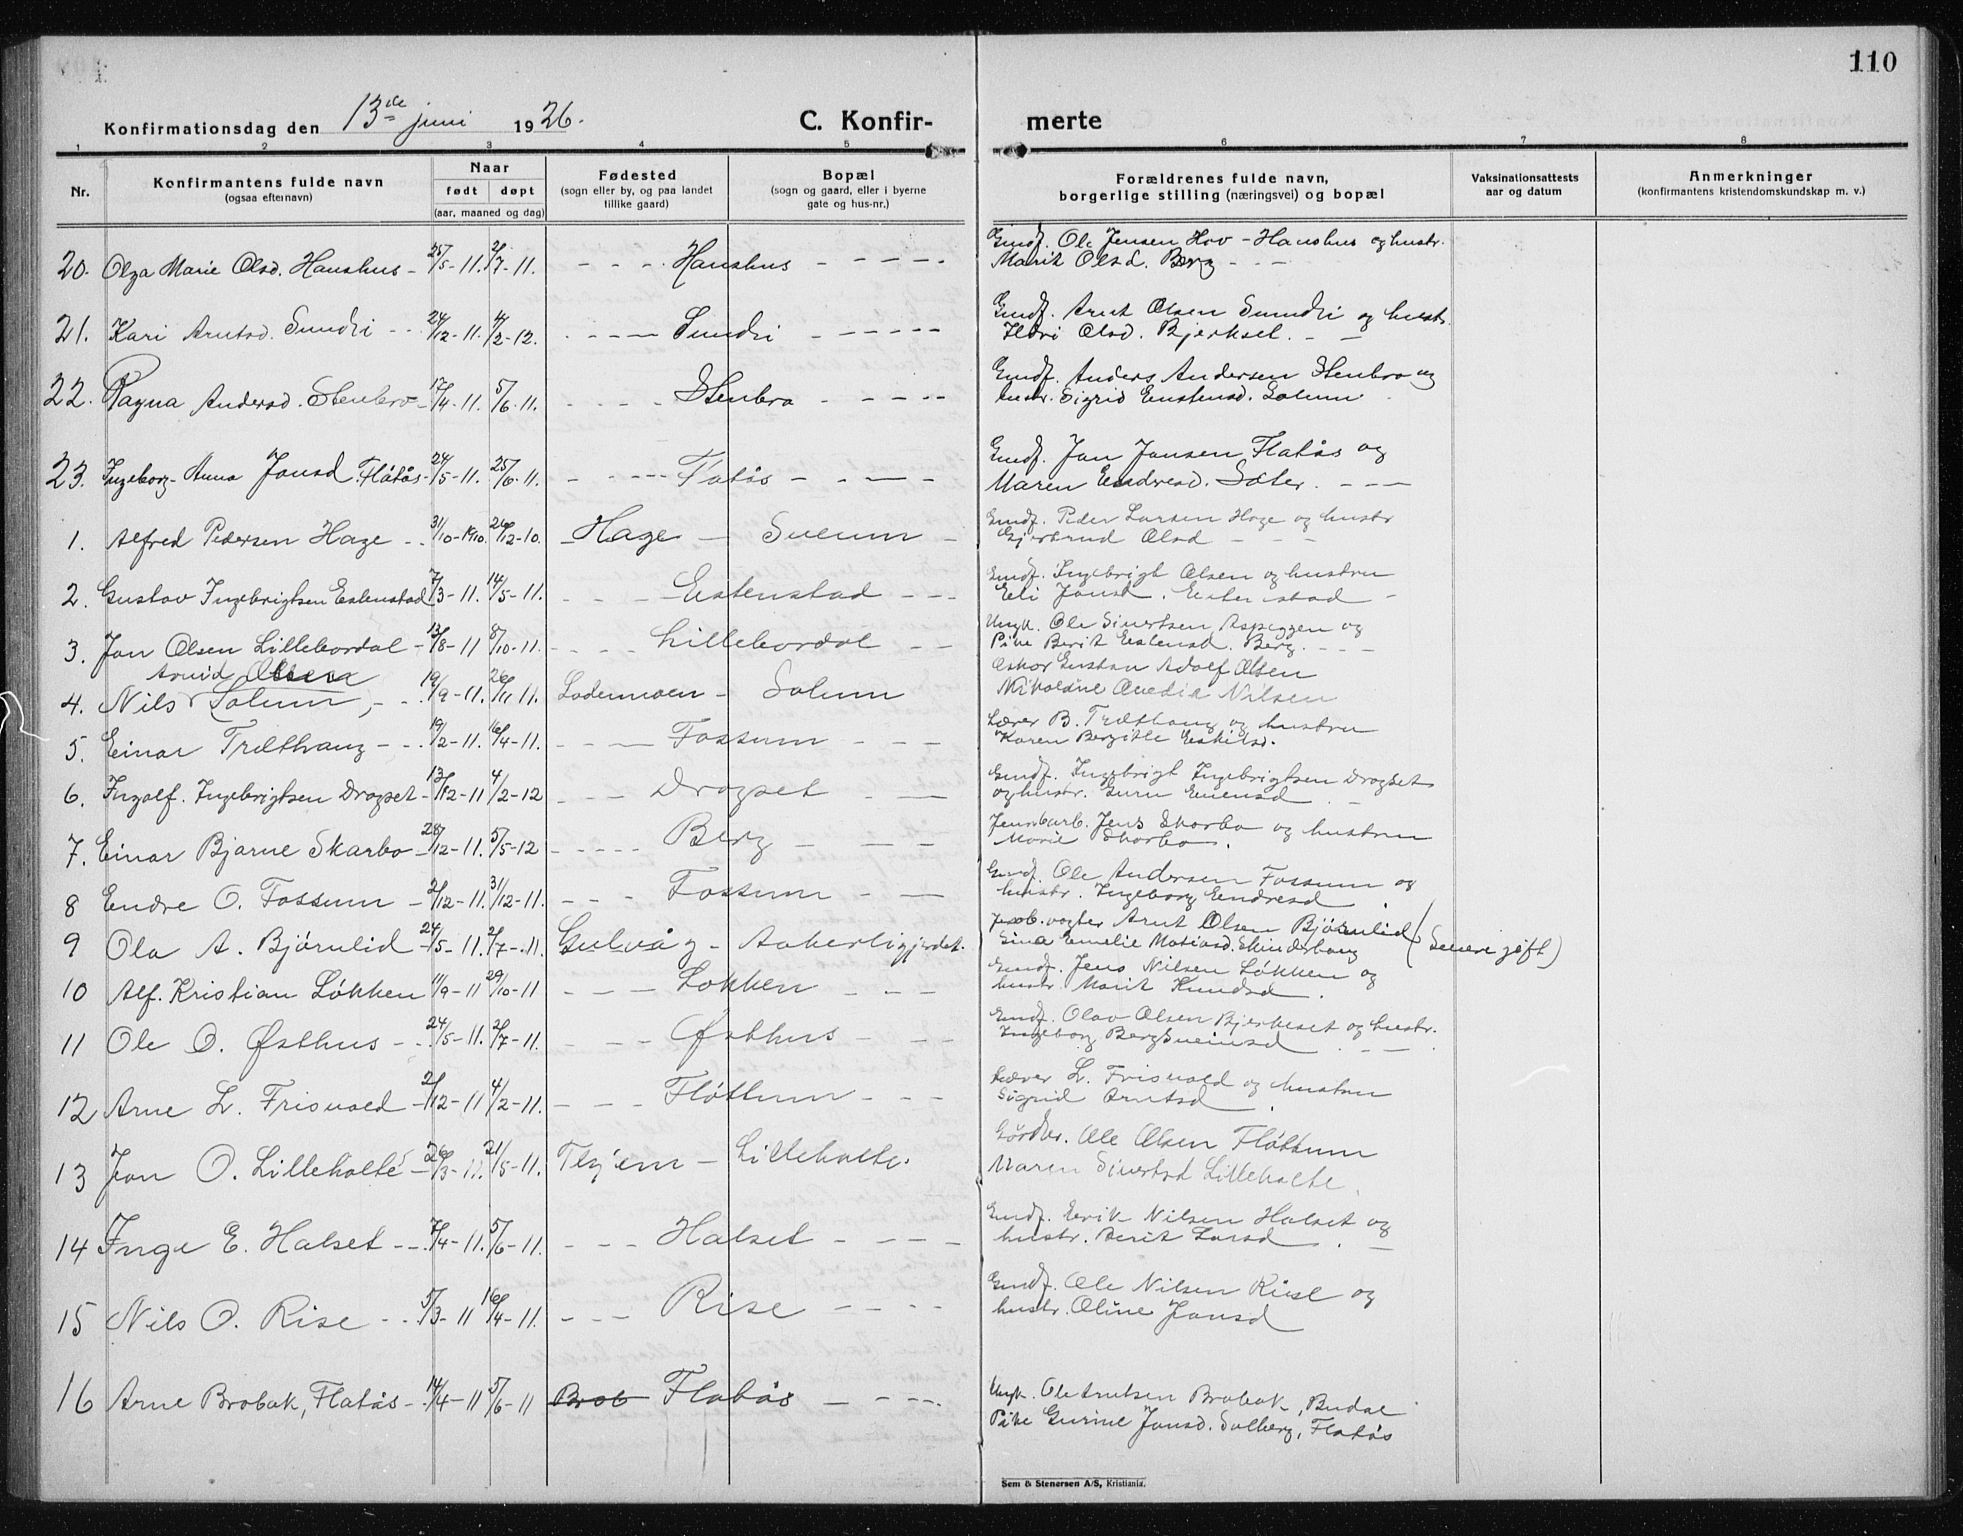 110
Konfirmationsdag den 13de juni 1926.
C. Konfirmerte
1 2 3 4 5 6 7 8
Nr.
Konfirmantens fulde navn
(ogsaa efternavn)
Naar
født døpt
(aar, maaned og dag)
Fødested
(sogn eller by, og paa landet
tillike gaard)
Bopæl
(sogn og gaard, eller i byerne
gate og hus-nr.)
Forældrenes fulde navn,
borgerlige stilling (næringsvei) og bopæl
Vaksinationsattests
aar og datum
Anmerkninger
(konfirmantens kristendomskundskap m. v.)
20. Olga Marie Olsd. Hanshus - 25/5-11. 2/7-11. - - - - Hanshus - - - - -
Gmdf. Ole Jensen Hov - Hanshus og hustr.
Marit Olsd. Berg - - -
21. Kari Arntsd. Sundli - - 24/12-11. 4/2-12. - - - - Sundli - - - - -
Gmdf. Arnt Olsen Sundli og hustr.
Ildri Olsd. Bjerkset. - -
22. Ragna Andersd. Stenbro - 17/4-11. 5/6-11. - - - - Stenbro - - - - -
Gmdf. Anders Andersen Stenbro og
hustr. Sigrid Estensd. Solem
23. Ingeborg Anna Jonsd. Flåtås - 24/5-11. 25/6-11. - - - - Flatås - - - -
Gmdf. Jon Jonsen Flatås og
Maren Endresd. Sæter. - - -
1. Alfred Pedersen Hage - - 31/10-1910. 26/12-10. - Hage - Solem -
Gmdf. Peder Larsen Hage og hustr
Gjertrud Olsd - - -
2. Gustav Ingebrigtsen Estenstad 7/3-11. 14/5-11. - - - - Estenstad - - -
Gmdf. Ingebrigt Olsen og hustru
Eli Jonsd. Estenstad -
3. Jon Olsen Lillebordal - 13/8-11 8/10-11. - - - - Lillebordal - -
Ungk. Ole Sivertsen Aspeggen og
Pike Berit Estensd. Berg. - - - -
4. Nils Arvid Olsen Solum, - - 19/9-11. 26/11 11. Lademoen - Solum
Oskar Gustav Adolf Olsen
Nikoline Amedia Nilsen
5. Einar Træthaug - - - 19/2-11. 16/4-11. - - - Fossum - - -
Lærer B. Træthaug og hustru
Karen Bergitte Eskilsd.
6. Ingolf. Ingebrigtsen Dragset - 13/12-11 4/2-12 - - - Dragset - -
Gmdf. Ingebrigt Ingebrigtsen Dragset
og hustr. Guru Evensd. -
7. Einar Bjarne Skarbo - 28/12-11. 5/5-12 - - - - - Berg - - -
Jernbarb. Jens Skarbo og hustru
Marie Skarbo.
8 Endre O. Fossum - 2/12-11. 31/12-11. - - - Fossum - -
Gmdf. Ole Andersen Fossum og
hustr. Ingeborg Endresd.
9 Ola A. Bjørnlid - 24/5-11. 2/7-11. Gulvåg - Aakerligjerdet.
Arnt Olsen Bjørnlid (Senere gift)
Sina Emelie Matiasd. Skinderhaug
10 Alf. Kristian Løkken 11/9-11 29/10-11 - - - Løkken - - -
Gmdf. Jens Nilsen Løkken og
hustr. Marit Knudsd.
11 Ole O. Østhus - - 24/5-11. 2/7-11. - - - Østhus - - -
Gmdf. Olav Olsen Bjerkeset og hustr.
Ingeborg Bergsveinsd - - -
12 Arne L. Frisvold - 2/12-11 4/2-11. - - - Fløttum - - -
Lærer L. Frisvold og hustru
Sigrid Arntsd.
13 Jon O. Lillehalte - 26/3-11. 21/5-11. Flg'em - Lillehalte.
Gårdbr. Ole Olsen Fløttum
Maren Sivertsd Lillehalte.
14 Inge E. Halset - - 7/4-11. 5/6-11. - - - Halset - - - -
Gmdf. Erik Nilsen Halset og
hustr. Berit Larsd. -
15 Nils O. Rise - - 5/3-11 16/4-11. - - - Rise - - - -
Gmdf. Ole Nilsen Riise og
hustr. Oline Jonsd
16 Arne Brobak, Flatås - - 14/4-11 5/6-11 Brob Flatås - - - -
Ungk. Ole Arntsen Brobak, Budal
Pike Gurine Jonsd. Solberg, Flatås
Sem & Stenersen A/S, Kristiania.